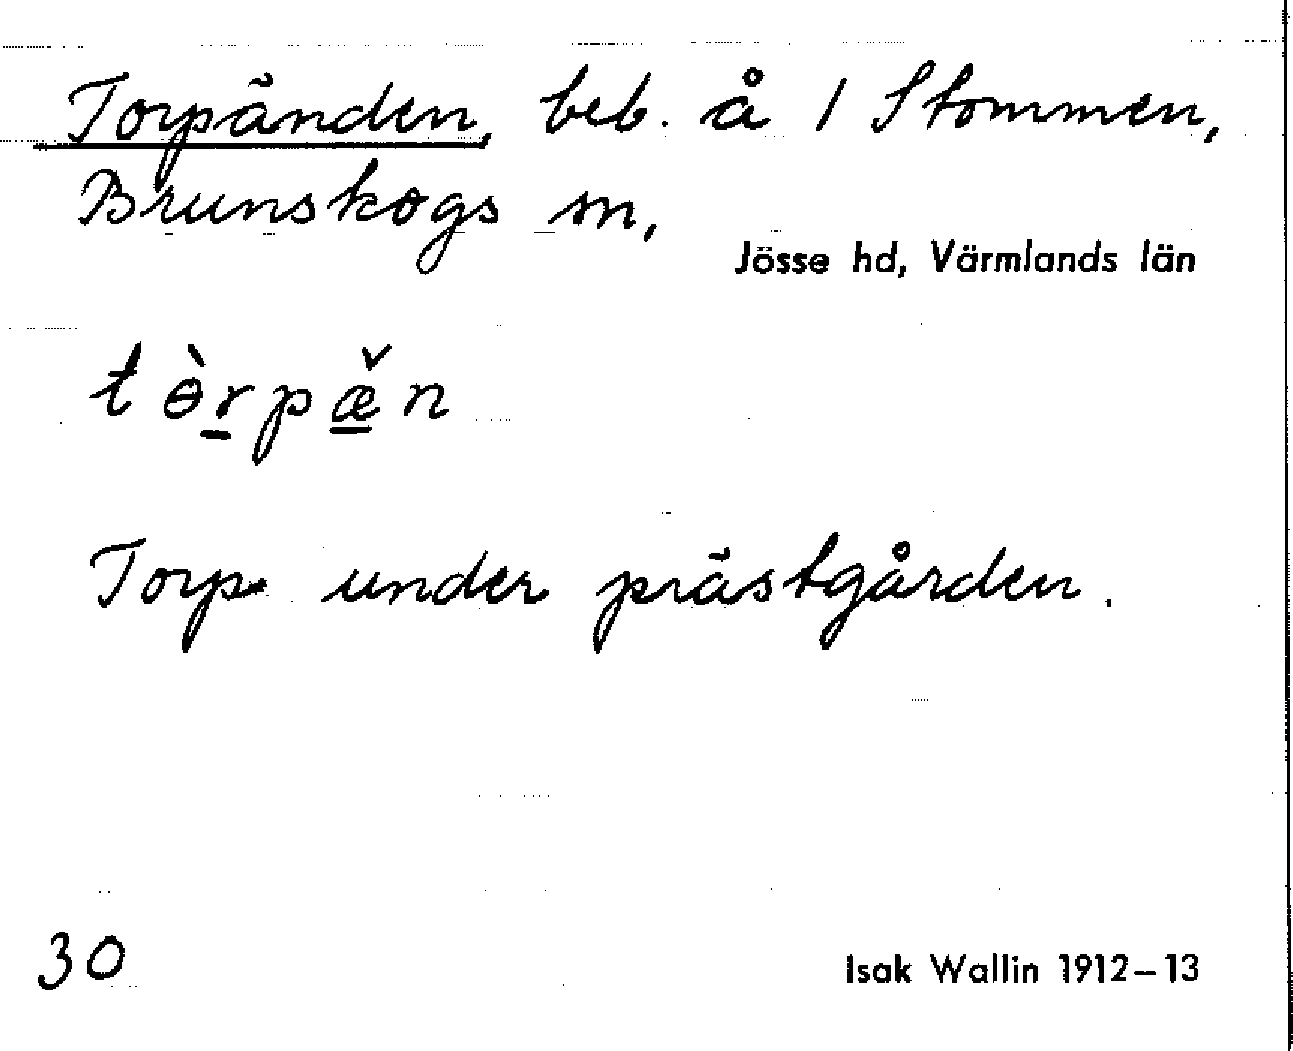 Torpänden, beb. å 1 Stommen,
Brunskogs sn,
Jösse hd, Värmlands län
tɵ̀r̲pæ̲̌n
Torp under prästgården.
30
Isak Wallin 1912–13